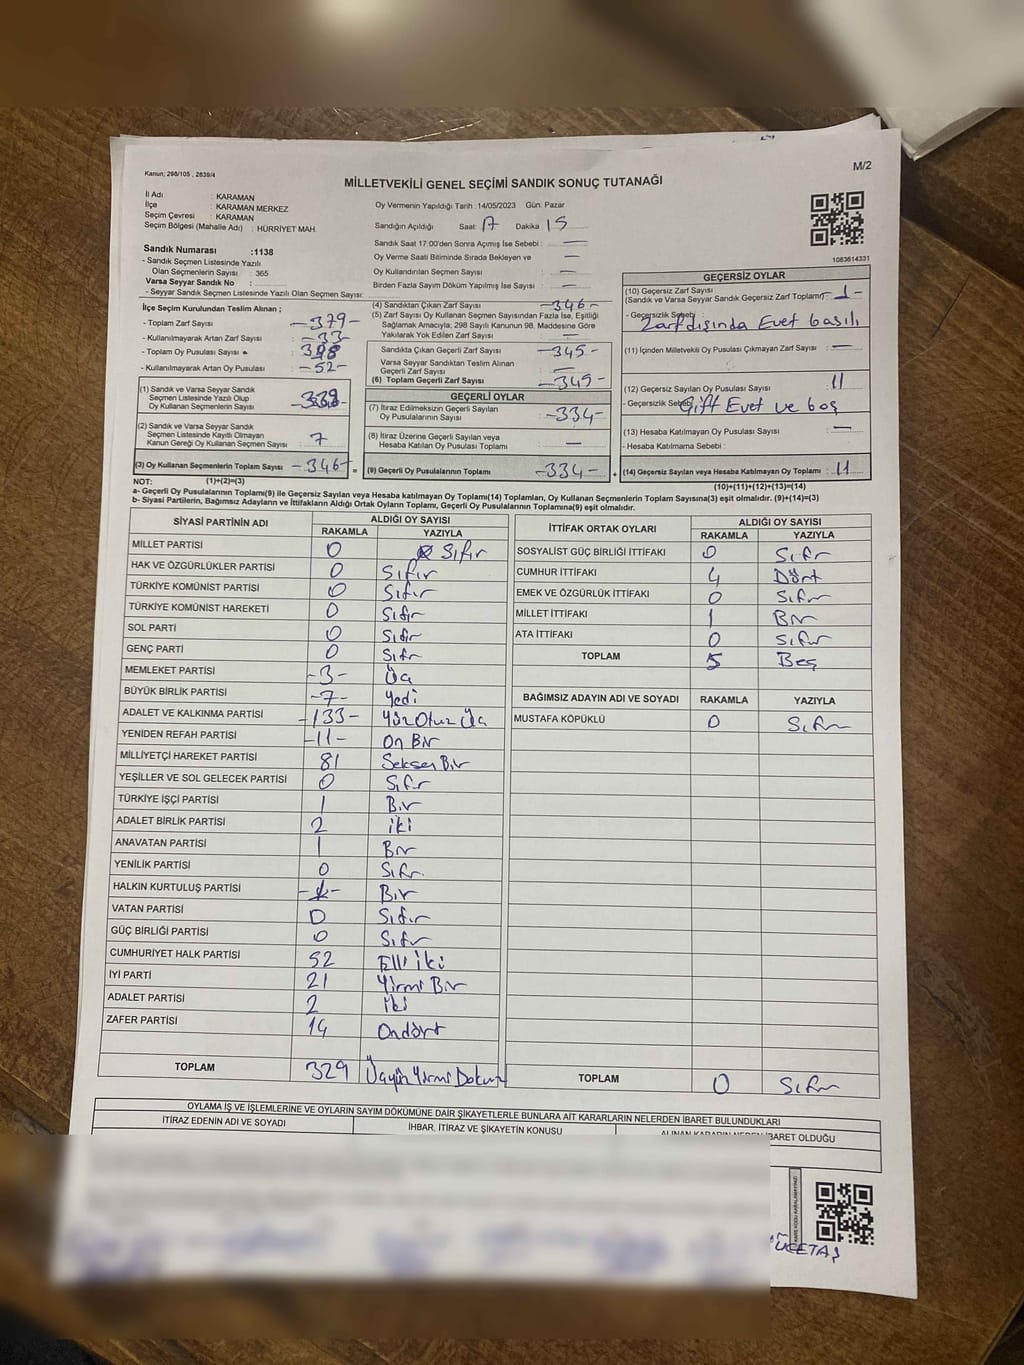 M/2
Kanun; 298/105 , 2839/4
MİLLETVEKİLİ GENEL SEÇİMİ SANDIK SONUÇ TUTANAĞI
İl Adı : KARAMAN
İlçe : KARAMAN MERKEZ
Seçim Çevresi : KARAMAN
Seçim Bölgesi (Mahalle Adı) : HÜRRİYET MAH.
Sandık Numarası :1138
- Sandık Seçmen Listesinde Yazılı
Olan Seçmenlerin Sayısı : 365
Varsa Seyyar Sandık No :
- Seyyar Sandık Seçmen Listesinde Yazılı Olan Seçmen Sayısı:
Oy Vermenin Yapıldığı Tarih : 14/05/2023 Gün: Pazar
Sandığın Açıldığı Saat: 17 Dakika: 15
Sandık Saat 17:00'den Sonra Açımış İse Sebebi : —
Oy Verme Saati Bitiminde Sırada Bekleyen ve —
Oy Kullandırılan Seçmen Sayısı : —
Birden Fazla Sayım Döküm Yapılmış İse Sayısı : —
1083614331
İlçe Seçim Kurulundan Teslim Alınan ;
- Toplam Zarf Sayısı : -379-
- Kullanılmayarak Artan Zarf Sayısı : -33-
- Toplam Oy Pusulası Sayısı : 398
- Kullanılmayarak Artan Oy Pusulası : -52-
(1) Sandık ve Varsa Seyyar Sandık
Seçmen Listesinde Yazılı Olup
Oy Kullanan Seçmenlerin Sayısı : -339-
(2) Sandık ve Varsa Seyyar Sandık
Seçmen Listesinde Kayıtlı Olmayan
Kanun Gereği Oy Kullanan Seçmen Sayısı : 7
(3) Oy Kullanan Seçmenlerin Toplam Sayısı : -346-
(4) Sandıktan Çıkan Zarf Sayısı -346-
(5) Zarf Sayısı Oy Kullanan Seçmen Sayısından Fazla İse, Eşitliği
Sağlamak Amacıyla; 298 Sayılı Kanunun 98. Maddesine Göre
Yakılarak Yok Edilen Zarf Sayısı : —
Sandıkta Çıkan Geçerli Zarf Sayısı : -345-
Varsa Seyyar Sandıktan Teslim Alınan
Geçerli Zarf Sayısı : —
(6) Toplam Geçerli Zarf Sayısı : -345-
GEÇERLİ OYLAR
(7) İtiraz Edilmeksizin Geçerli Sayılan
Oy Pusulalarının Sayısı : -334-
(8) İtiraz Üzerine Geçerli Sayılan veya
Hesaba Katılan Oy Pusulası Toplamı : —
(9) Geçerli Oy Pusulalarının Toplamı : -334-
GEÇERSİZ OYLAR
(10) Geçersiz Zarf Sayısı
(Sandık ve Varsa Seyyar Sandık Geçersiz Zarf Toplamı) -1-
- Geçersizlik Sebebi :
Zarf dışında Evet basılı
(11) İçinden Milletvekili Oy Pusulası Çıkmayan Zarf Sayısı : —
(12) Geçersiz Sayılan Oy Pusulası Sayısı : 11
- Geçersizlik Sebebi : Çift Evet ve boş
(13) Hesaba Katılmayan Oy Pusulası Sayısı : —
- Hesaba Katılmama Sebebi :
(14) Geçersiz Sayılan veya Hesaba Katılmayan Oy Toplamı : 11
NOT: (1)+(2)=(3)
(10)+(11)+(12)+(13)=(14)
a- Geçerli Oy Pusulalarının Toplamı(9) ile Geçersiz Sayılan veya Hesaba katılmayan Oy Toplamı(14) Toplamları, Oy Kullanan Seçmenlerin Toplam Sayısına(3) eşit olmalıdır. (9)+(14)=(3)
b- Siyasi Partilerin, Bağımsız Adayların ve İttifakların Aldığı Ortak Oyların Toplamı, Geçerli Oy Pusulalarının Toplamına(9) eşit olmalıdır.
SİYASİ PARTİNİN ADI ALDIĞI OY SAYISI
RAKAMLA YAZIYLA
MİLLET PARTİSİ 0 Sıfır
HAK VE ÖZGÜRLÜKLER PARTİSİ 0 Sıfır
TÜRKİYE KOMÜNİST PARTİSİ 0 Sıfır
TÜRKİYE KOMÜNİST HAREKETİ 0 Sıfır
SOL PARTİ 0 Sıfır
GENÇ PARTİ 0 Sıfır
MEMLEKET PARTİSİ -3- Üç
BÜYÜK BİRLİK PARTİSİ -7- Yedi
ADALET VE KALKINMA PARTİSİ -133- Yüz Otuz Üç
YENİDEN REFAH PARTİSİ -11- On Bir
MİLLİYETÇİ HAREKET PARTİSİ 81 Seksen Bir
YEŞİLLER VE SOL GELECEK PARTİSİ 0 Sıfır
TÜRKİYE İŞÇİ PARTİSİ 1 Bir
ADALET BİRLİK PARTİSİ 2 iki
ANAVATAN PARTİSİ 1 Bir
YENİLİK PARTİSİ 0 Sıfır
HALKIN KURTULUŞ PARTİSİ -1- Bir
VATAN PARTİSİ 0 Sıfır
GÜÇ BİRLİĞİ PARTİSİ 0 Sıfır
CUMHURİYET HALK PARTİSİ 52 Elli iki
İYİ PARTİ 21 Yirmi Bir
ADALET PARTİSİ 2 iki
ZAFER PARTİSİ 14 Ondört
TOPLAM 329 Üçyüz Yirmi Dokuz
İTTİFAK ORTAK OYLARI ALDIĞI OY SAYISI
RAKAMLA YAZIYLA
SOSYALİST GÜÇ BİRLİĞİ İTTİFAKI 0 Sıfır
CUMHUR İTTİFAKI 4 Dört
EMEK VE ÖZGÜRLÜK İTTİFAKI 0 Sıfır
MİLLET İTTİFAKI 1 Bir
ATA İTTİFAKI 0 Sıfır
TOPLAM 5 Beş
BAĞIMSIZ ADAYIN ADI VE SOYADI RAKAMLA YAZIYLA
MUSTAFA KÖPÜKLÜ 0 Sıfır
TOPLAM 0 Sıfır
OYLAMA İŞ VE İŞLEMLERİNE VE OYLARIN SAYIM DÖKÜMÜNE DAİR ŞİKAYETLERLE BUNLARA AİT KARARLARIN NELERDEN İBARET BULUNDUKLARI
İTİRAZ EDENİN ADI VE SOYADI İHBAR, İTİRAZ VE ŞİKAYETİN KONUSU ALINAN KARARIN NEDEN İBARET OLDUĞU